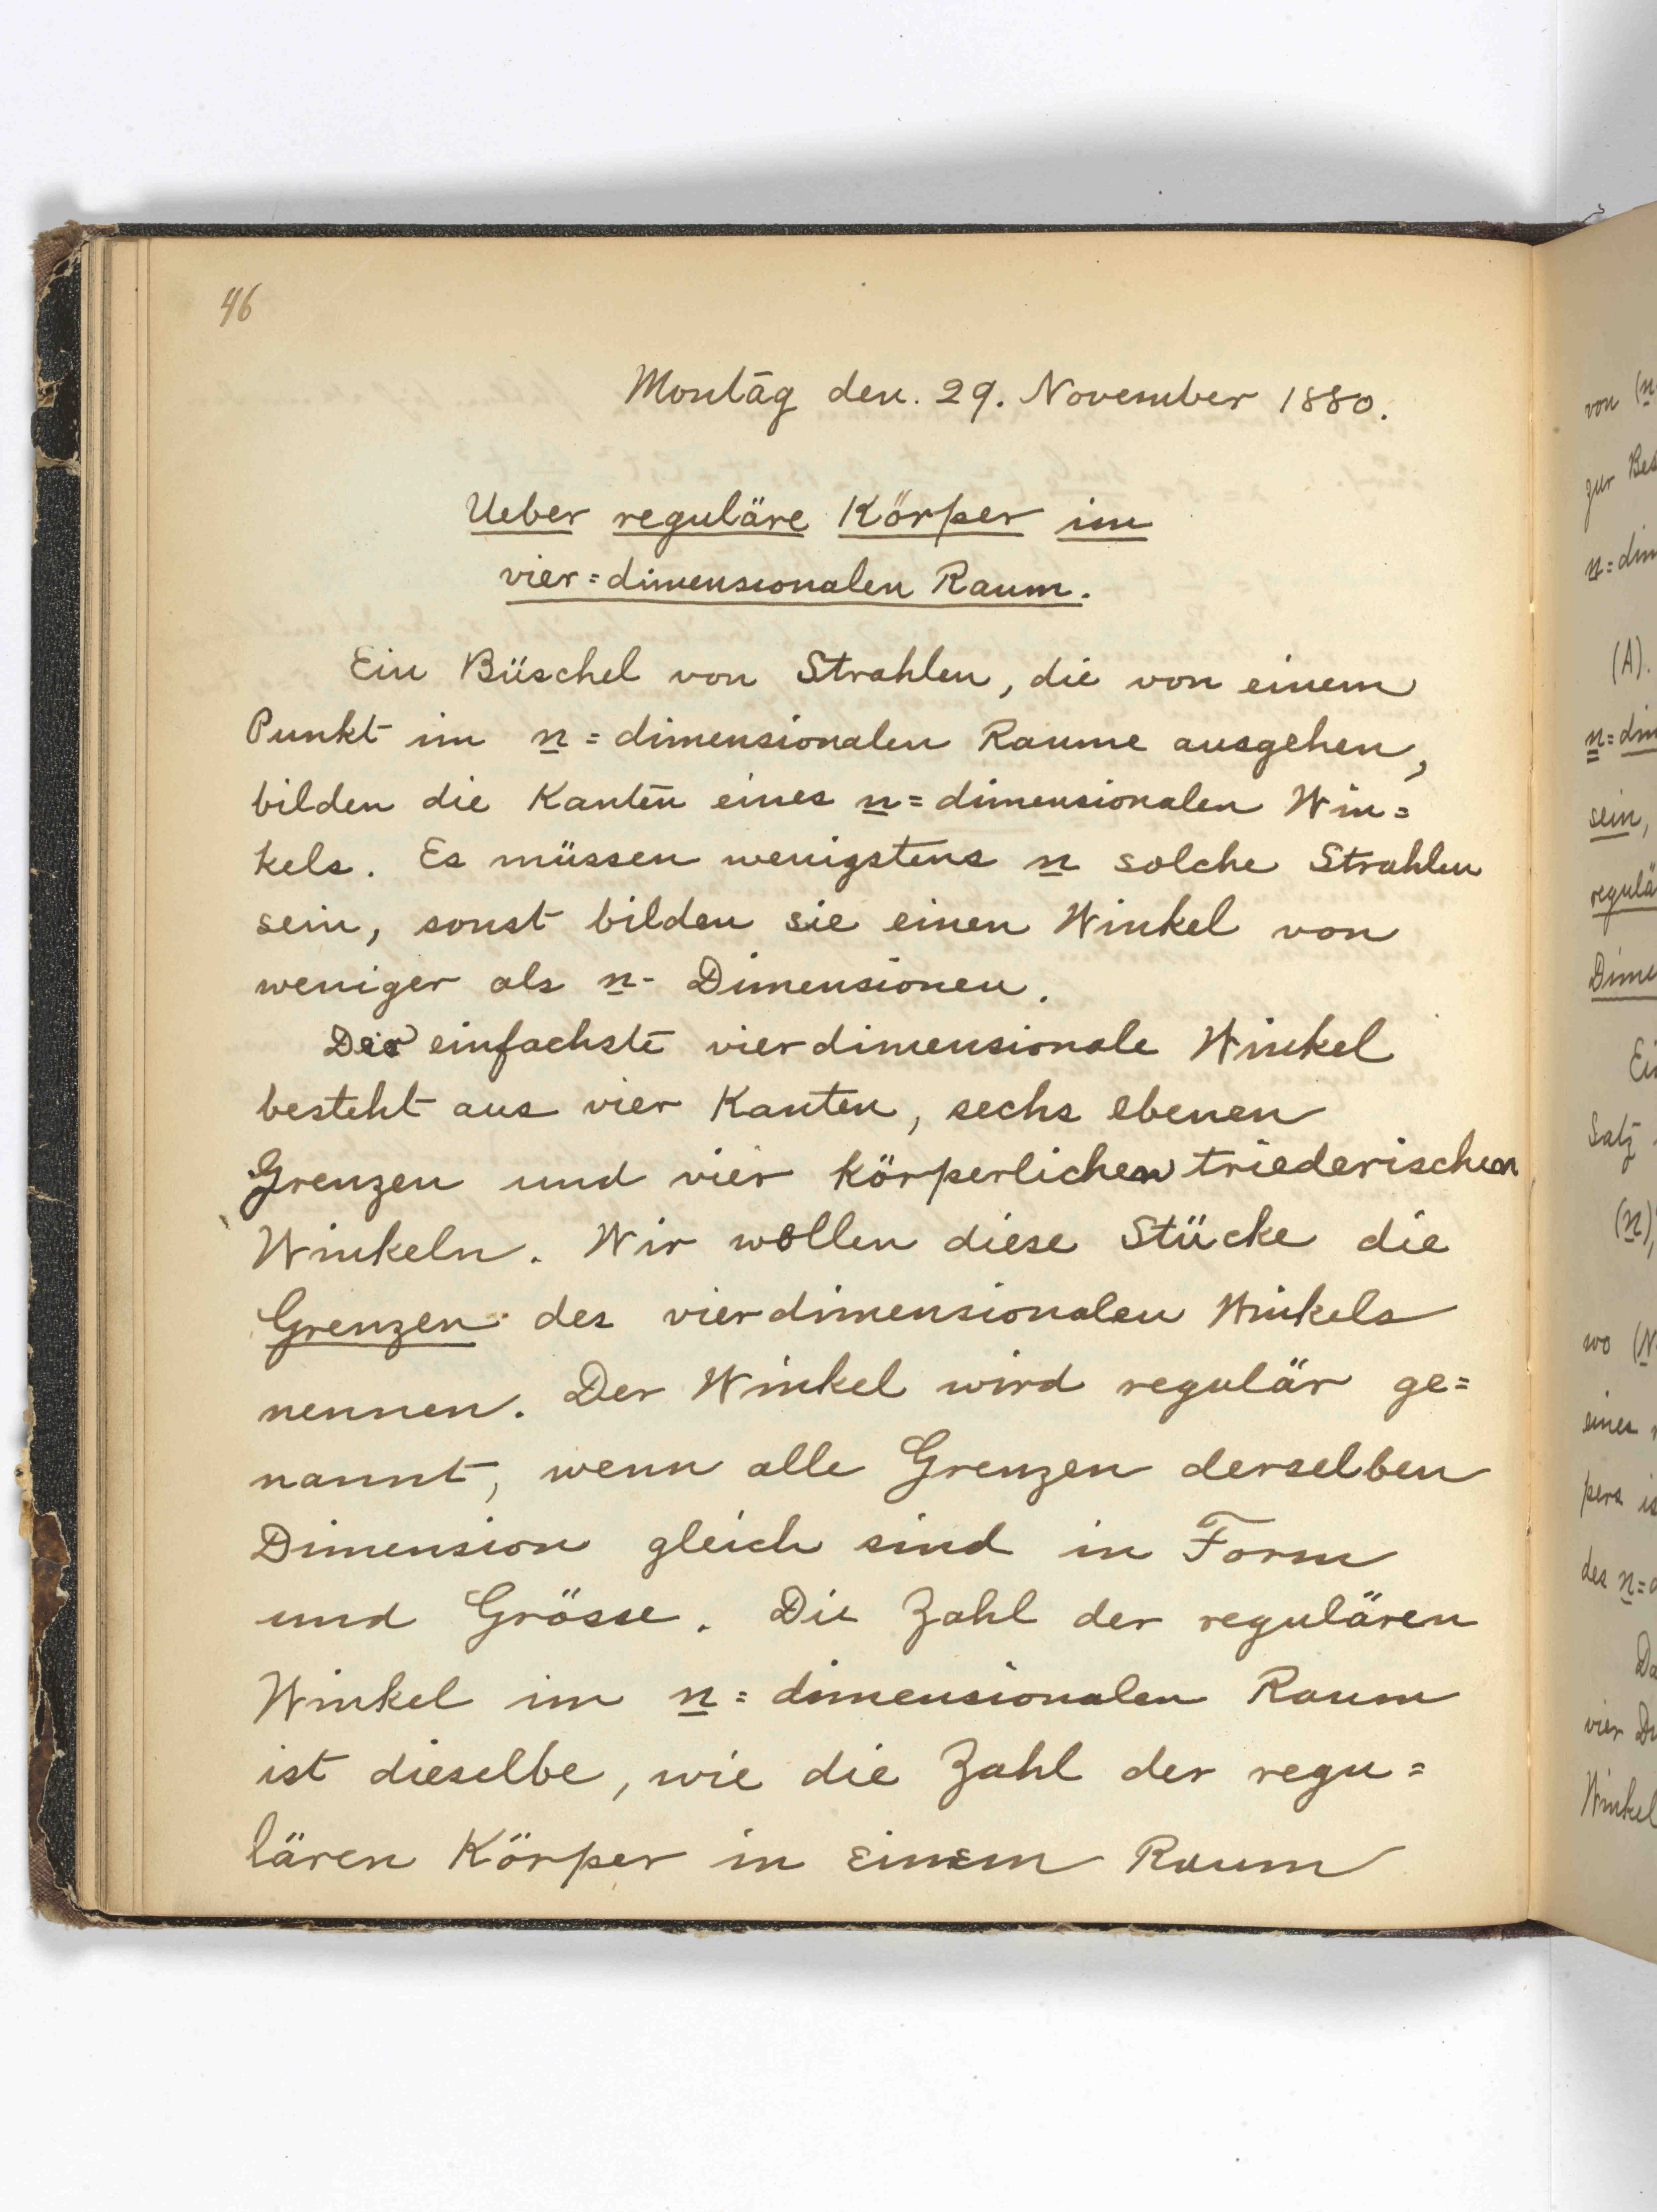 46
Montag den. 29. November 1880.
Ueber reguläre Körper im
vier=dimensionalen Raum.
Ein Büschel von Strahlen, die von einem
Punkt im n=dimensionalen Raume ausgehen,
bilden die Kanten eines n=dimensionalen Win=
kels. Es müssen wenigstens n solche Strahlen
sein, sonst bilden sie einen Winkel von
weniger als n- Dimensionen.
Der einfachste vierdimensionale Winkel
besteht aus vier Kanten, sechs ebenen
Grenzen und vier körperlichen triederischen
Winkeln. Wir wollen diese Stücke die
Grenzen des vierdimensionalen Winkels
nennen. Der Winkel wird regulär ge=
nannt, wenn alle Grenzen derselben
Dimension gleich sind in Form
und Grösse. Die Zahl der regulären
Winkel im n=dimensionalen Raum
ist dieselbe, wie die Zahl der regu=
lären Körper in einem Raum
von (n
zur Bes
n=dim
(A).
n=dim
sein,
regulä
Dime
Ei
Satz
(n),
wo (N
eines
pers is
des n=d
Da
vier Di
Winkel